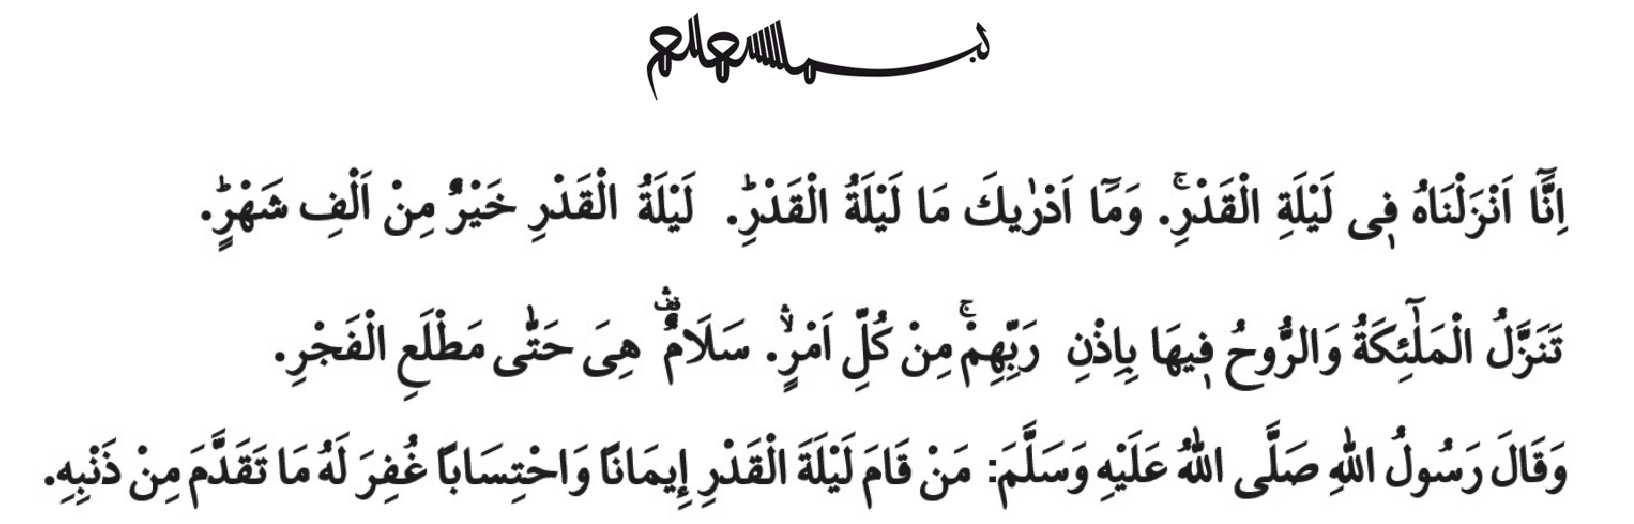 بسم الله الرحمن الرحيم
اِنَّٓا اَنْزَلْنَاهُ ف۪ى لَيْلَةِ الْقَدْرِۚ. وَمَٓا اَدْرٰيكَ مَا لَيْلَةُ الْقَدْرِۜ. لَيْلَةُ الْقَدْرِ خَيْرٌ مِنْ اَلْفِ شَهْرٍۜ.
تَنَزَّلُ الْمَلٰٓئِكَةُ وَالرُّوحُ ف۪يهَا بِاِذْنِ رَبِّهِمْۚ مِنْ كُلِّ اَمْرٍۙ. سَلَامٌ۠ هِىَ حَتّٰى مَطْلَعِ الْفَجْرِ.
وَقَالَ رَسُولُ اللهِ صَلَّى اللهُ عَلَيْهِ وَسَلَّمَ: مَنْ قَامَ لَيْلَةَ الْقَدْرِ إِيمَانًا وَاحْتِسَابًا غُفِرَ لَهُ مَا تَقَدَّمَ مِنْ ذَنْبِهِ.